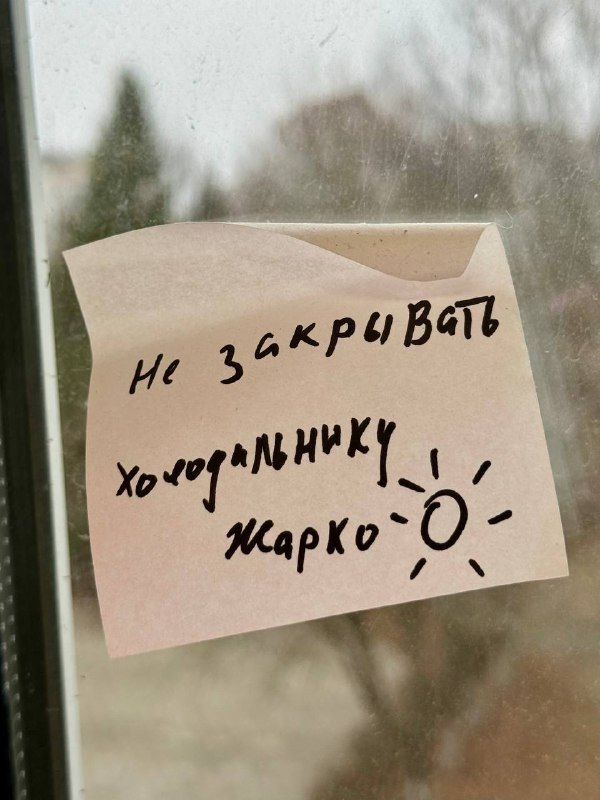 Не закрывать
холодильнику
жарко